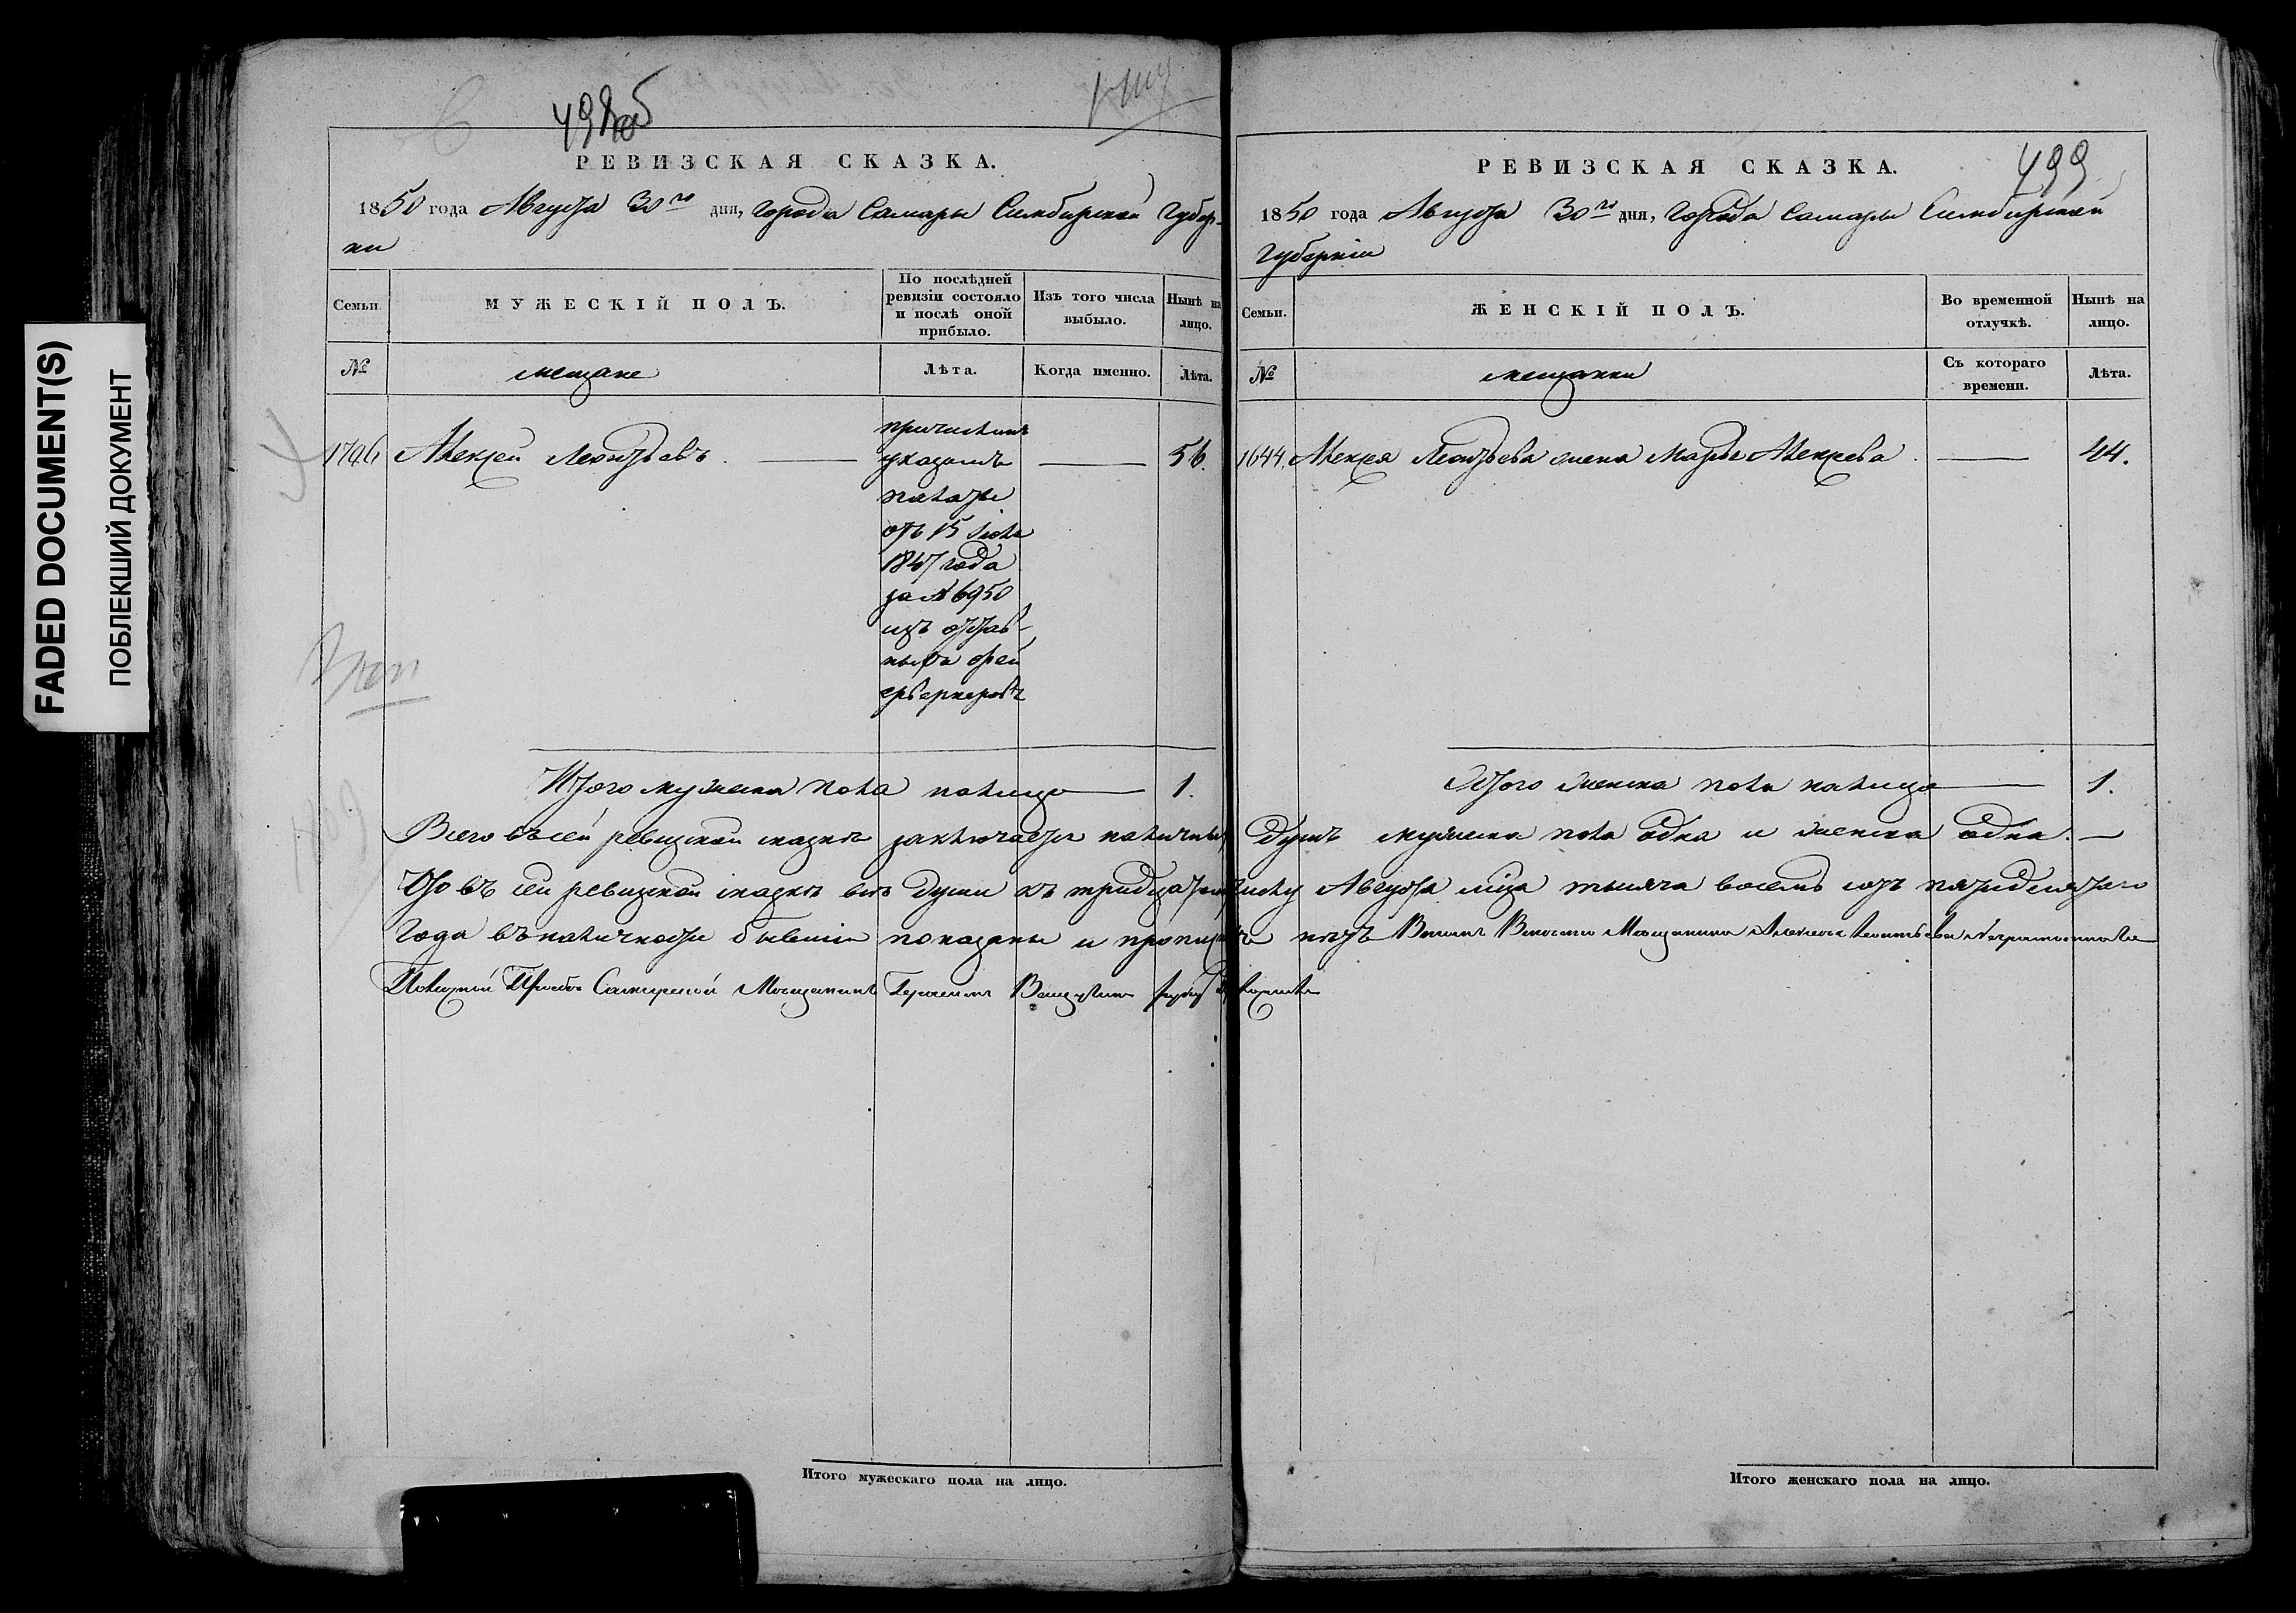 FADED DOCUMENT(S)
ПОБЛЕКШИЙ ДОКУМЕНТ
498об
РЕВИЗСКАЯ СКАЗКА.
1850 года Августа 30го дня, города Самары Симбирской Губер-
нии
Семьи.
МУЖЕСКІЙ ПОЛЪ.
По послѣдней ревизіи состояло и послѣ оной прибыло.
Изъ того числа выбыло.
Нынѣ на лицо.
№
мещане
Лѣта.
Когда именно.
Лѣта.
Алексей Леонтьевъ
56.
причисленъ
указомъ
палаты
отъ 15 Iюля
1847 года
за № 6950
изъ отстав-
ныхъ
Итого мужеска пола налицо 1.
499
РЕВИЗСКАЯ СКАЗКА.
1850 года Августа 30го дня, города Самары Симбирской
Губерніи
Семьи.
ЖЕНСКІЙ ПОЛЪ.
Во временной отлучкѣ.
Нынѣ на лицо.
№
мещанки
Съ котораго времени.
Лѣта.
1644. Алексея Леонтьева жена Марья Алексеева 44.
Итого женска пола налицо 1.
Всего въ сей ревизской сказке заключается наличныхъ Душъ мужеска пола одна и женска одна.
Что въ сей ревизской сказке все Души къ тридцатому числу Августа мца тысяча восемь сотъ пятидесятаго
Года въ наличности бывшіе показаны и нетъ Мещанина Алексея Леонтьева
Самарской Мещанинъ руку приложилъ
Итого мужескаго пола на лицо.
Итого женскаго пола на лицо.